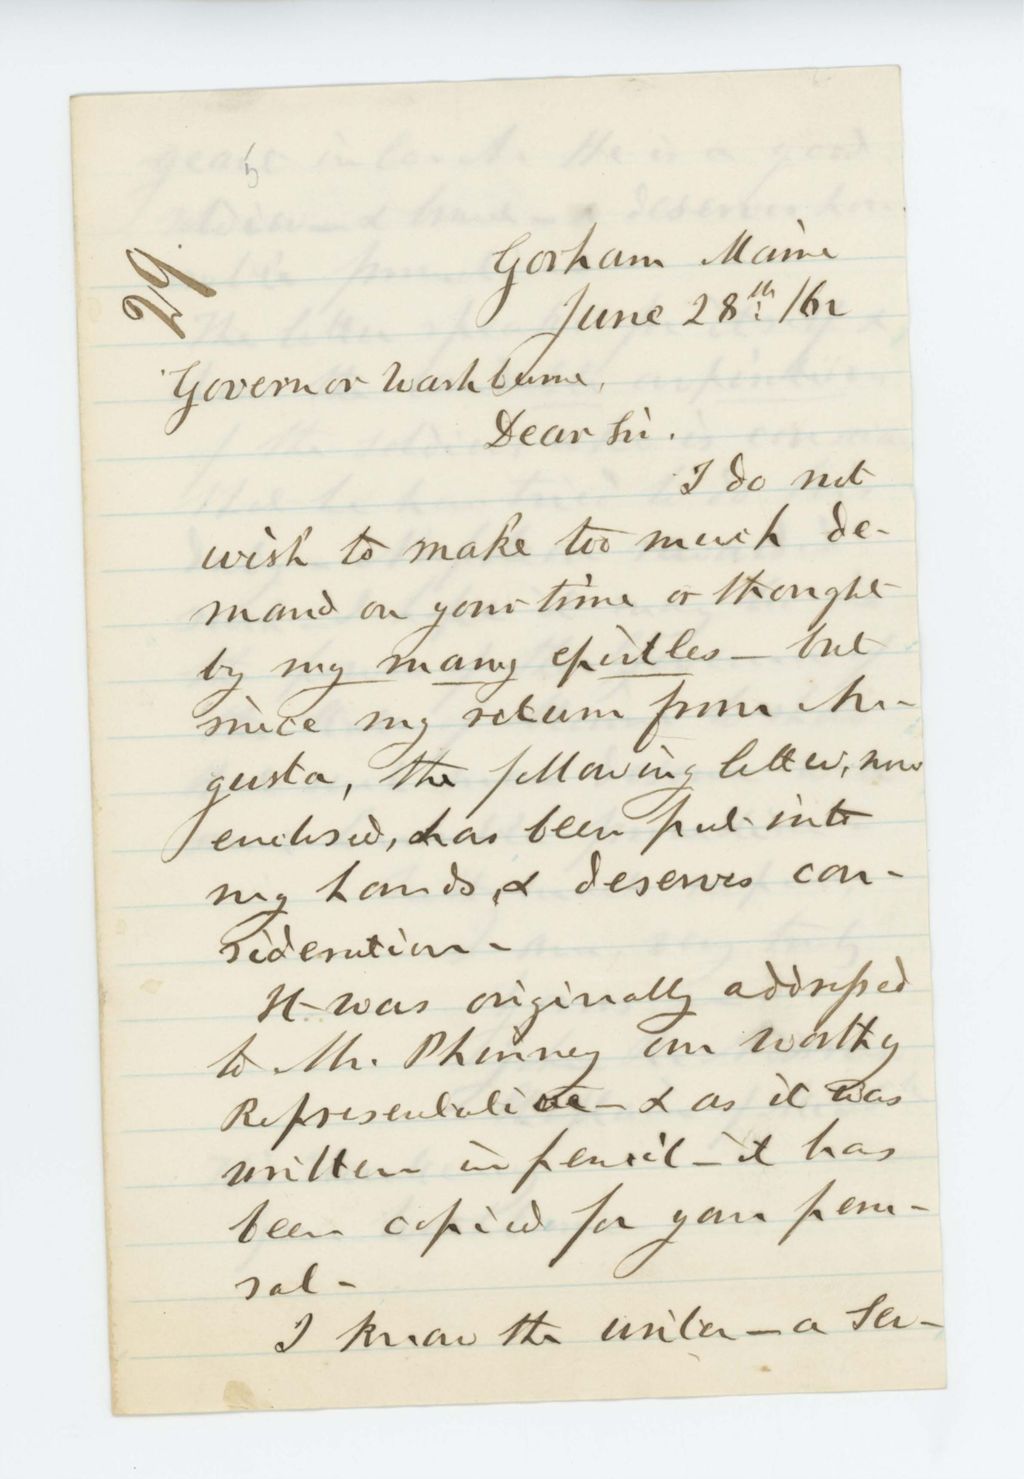 29
Gorham Maine
June 28th /62
Governor Washburne,
Dear Sir.
I do not
wish to make too much de-
mand on your time or thought
by my many epistles - but
since my return from Au-
gusta, the following letter, now
enclosed, has been put into
my hands, & deserves con-
sideration -
It was originally addressed
to Mr. Phinney our worthy
Representative - & as it was
written in pencil - it has
been copied for your peru-
sal -
I know the writer - a Ser-